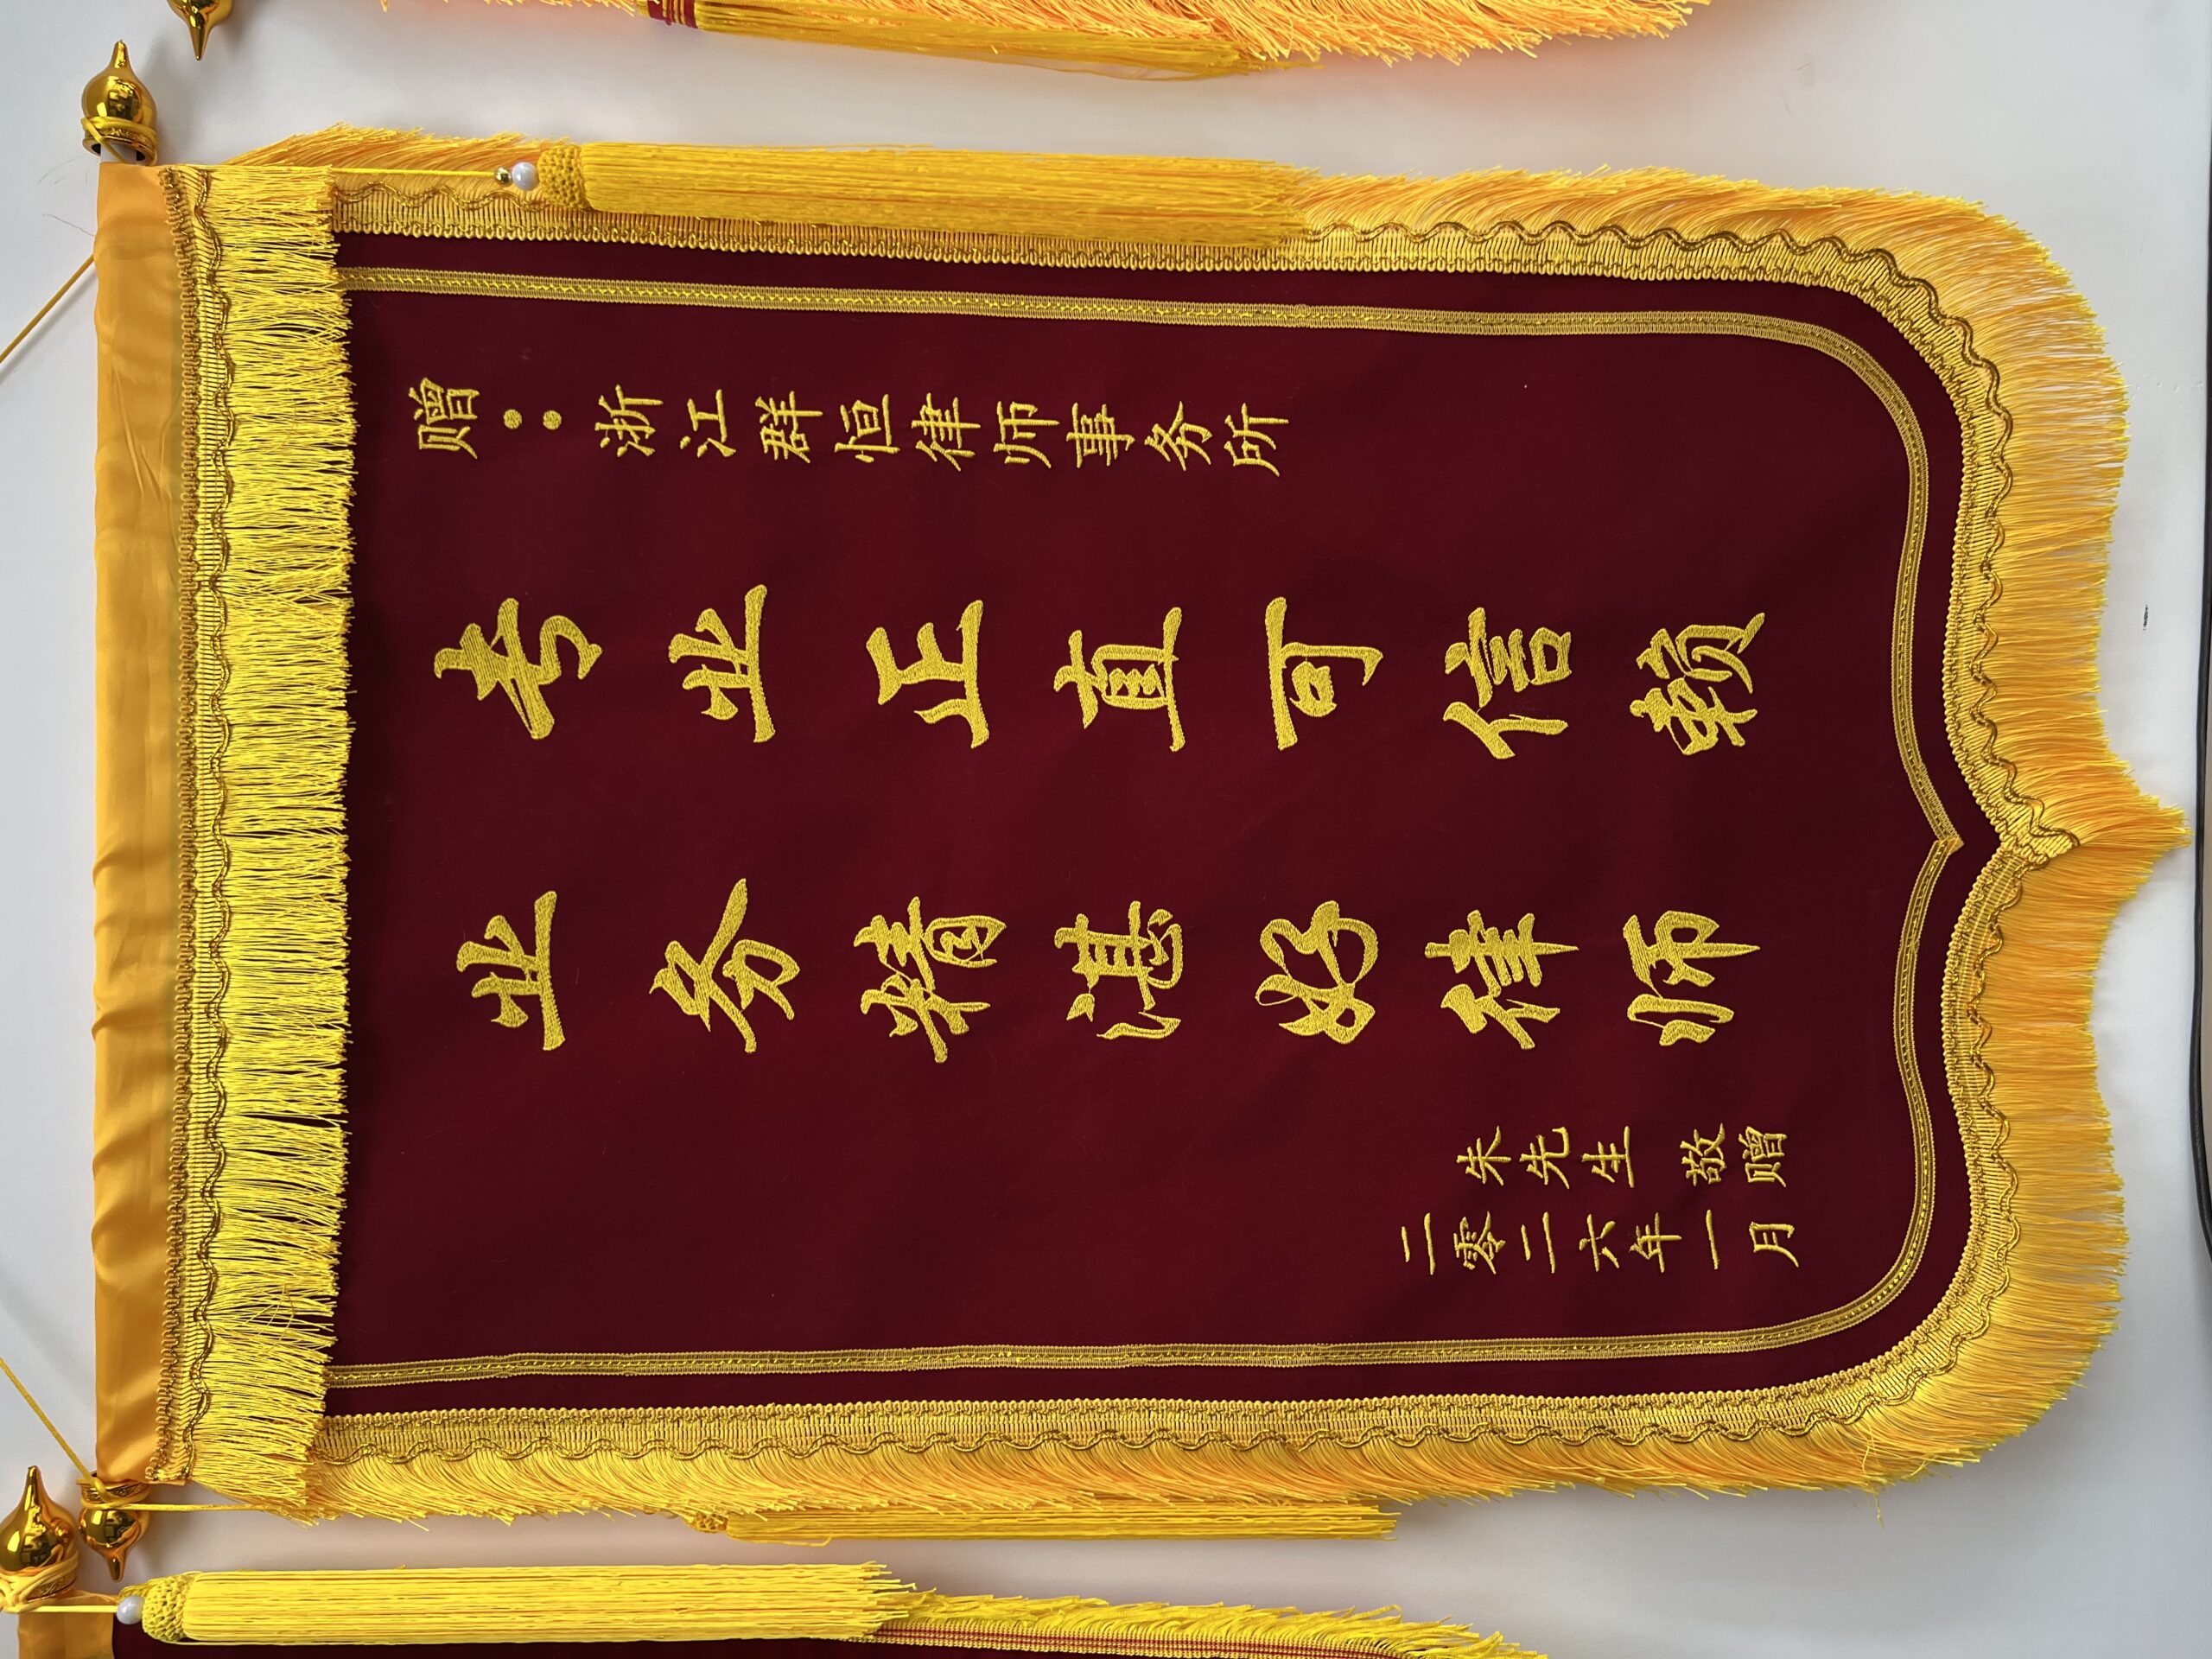 赠：浙江群恒律师事务所
专业正直可信赖
业务精湛好律师
朱先生 敬赠
二零二六年一月